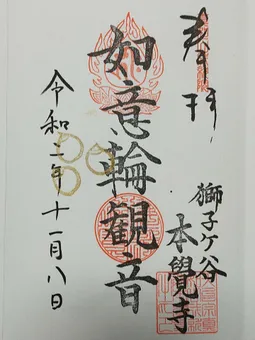 奉拝
獅子ケ谷
本覺寺
如意輪觀音
令和二年十一月八日